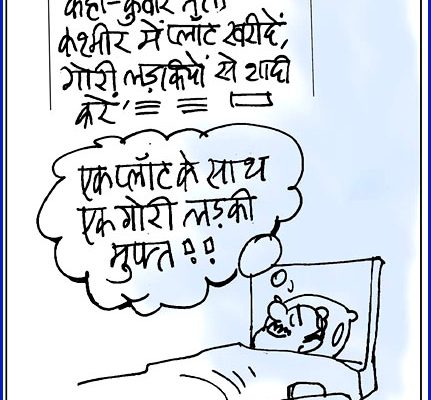 कहा-कुंवारे नेता
कश्मीर में प्लॉट खरीदें,
गोरी लड़कियों से शादी
करें'
एक प्लॉट के साथ
एक गोरी लड़की
मुफ्त !!